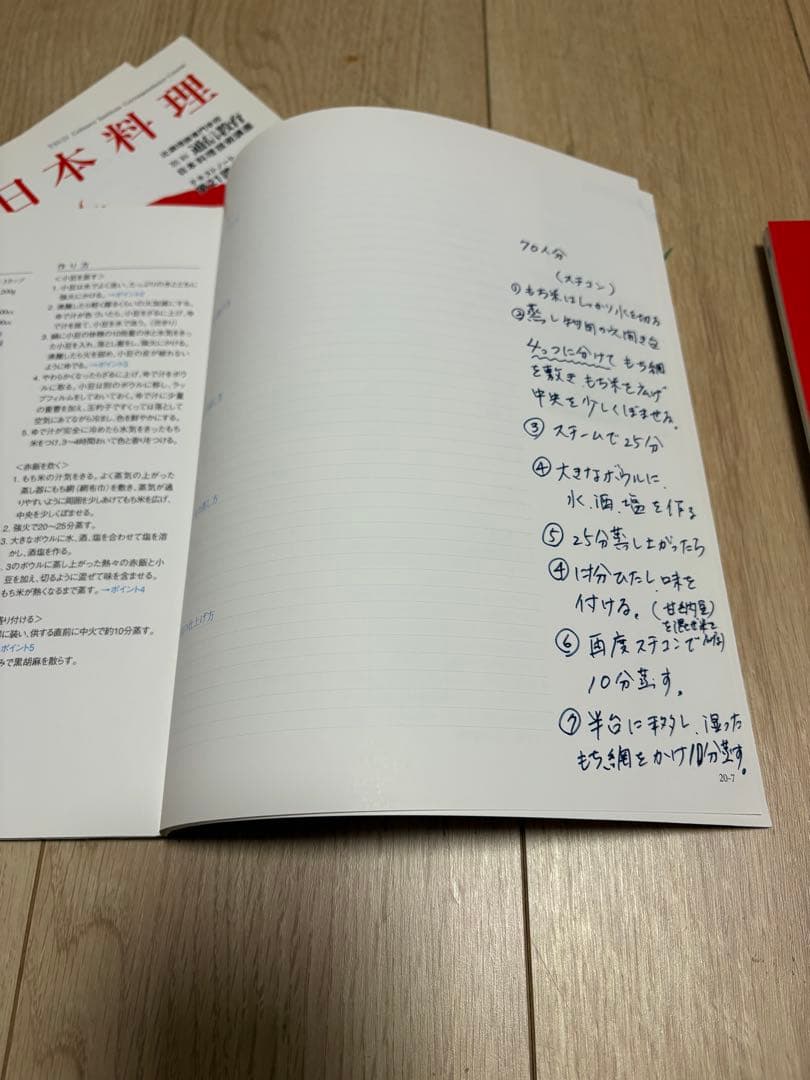 TSUJI Culinary Institute Correspondence Course
日本料理
通信教育
日本料理技術講座
作り方
<小豆を蒸す>
1. 小豆は水でよく洗い、たっぷりの水とともに
強火にかける。→ポイント2
2. 沸騰したら軽く躍るくらいの火加減にする。
ゆで汁が色づいたら、小豆をざるに上げ、ゆ
で汁を捨て、小豆を水で洗う。(渋きり)
3. 鍋に小豆の体積の10倍量の水と水気をきっ
た小豆を入れ、落とし蓋をし、強火にかける。
沸騰したら火を弱め、小豆の皮が破れない
ようにゆでる。→ポイント3
4. やわらかくなったらざるに上げ、ゆで汁をボウ
ルに取る。小豆は別のボウルに移し、ラッ
プフィルムをしておいておく。ゆで汁に少量
の重曹を加え、玉杓子ですくっては落として
空気にあてながら冷まし、色を鮮やかにする。
5. ゆで汁が完全に冷めたら水気をきったもち
米をつけ、3〜4時間おいて色と香りをつける。
<赤飯を炊く>
1. もち米の汁気をきる。よく蒸気の上がった
蒸し器にもち網(綿布巾)を敷き、蒸気が通
りやすいように周囲を少しあけてもち米を広げ、
中央を少しくぼませる。
2. 強火で20〜25分蒸す。
3. 大きなボウルに水、酒、塩を合わせて塩を溶
かし、酒塩を作る。
3のボウルに蒸し上がった熱々の赤飯と小
豆を加え、切るように混ぜて味を含ませる。
もち米が熱くなるまで蒸す。→ポイント4
り付ける>
に装い、供する直前に中火で約10分蒸す。
ポイント5
みで黒胡麻を散らす。
仕上げ方
70人分
(スチコン)
①もち米はしっかり水を切る
②蒸し
4っつに分けて もち網
を敷き、もち米を広げ
中央を少しくぼませる。
③ スチームで25分
④ 大きなボウルに、
水、酒、塩を作る
⑤ 25分蒸し上がったら
④ 1分ひたし、味を
付ける。(甘納豆
⑥ 再度スチコンで
10分蒸す。
⑦ 半台に移し、湿った
もち網をかけ10分蒸す。
20-7